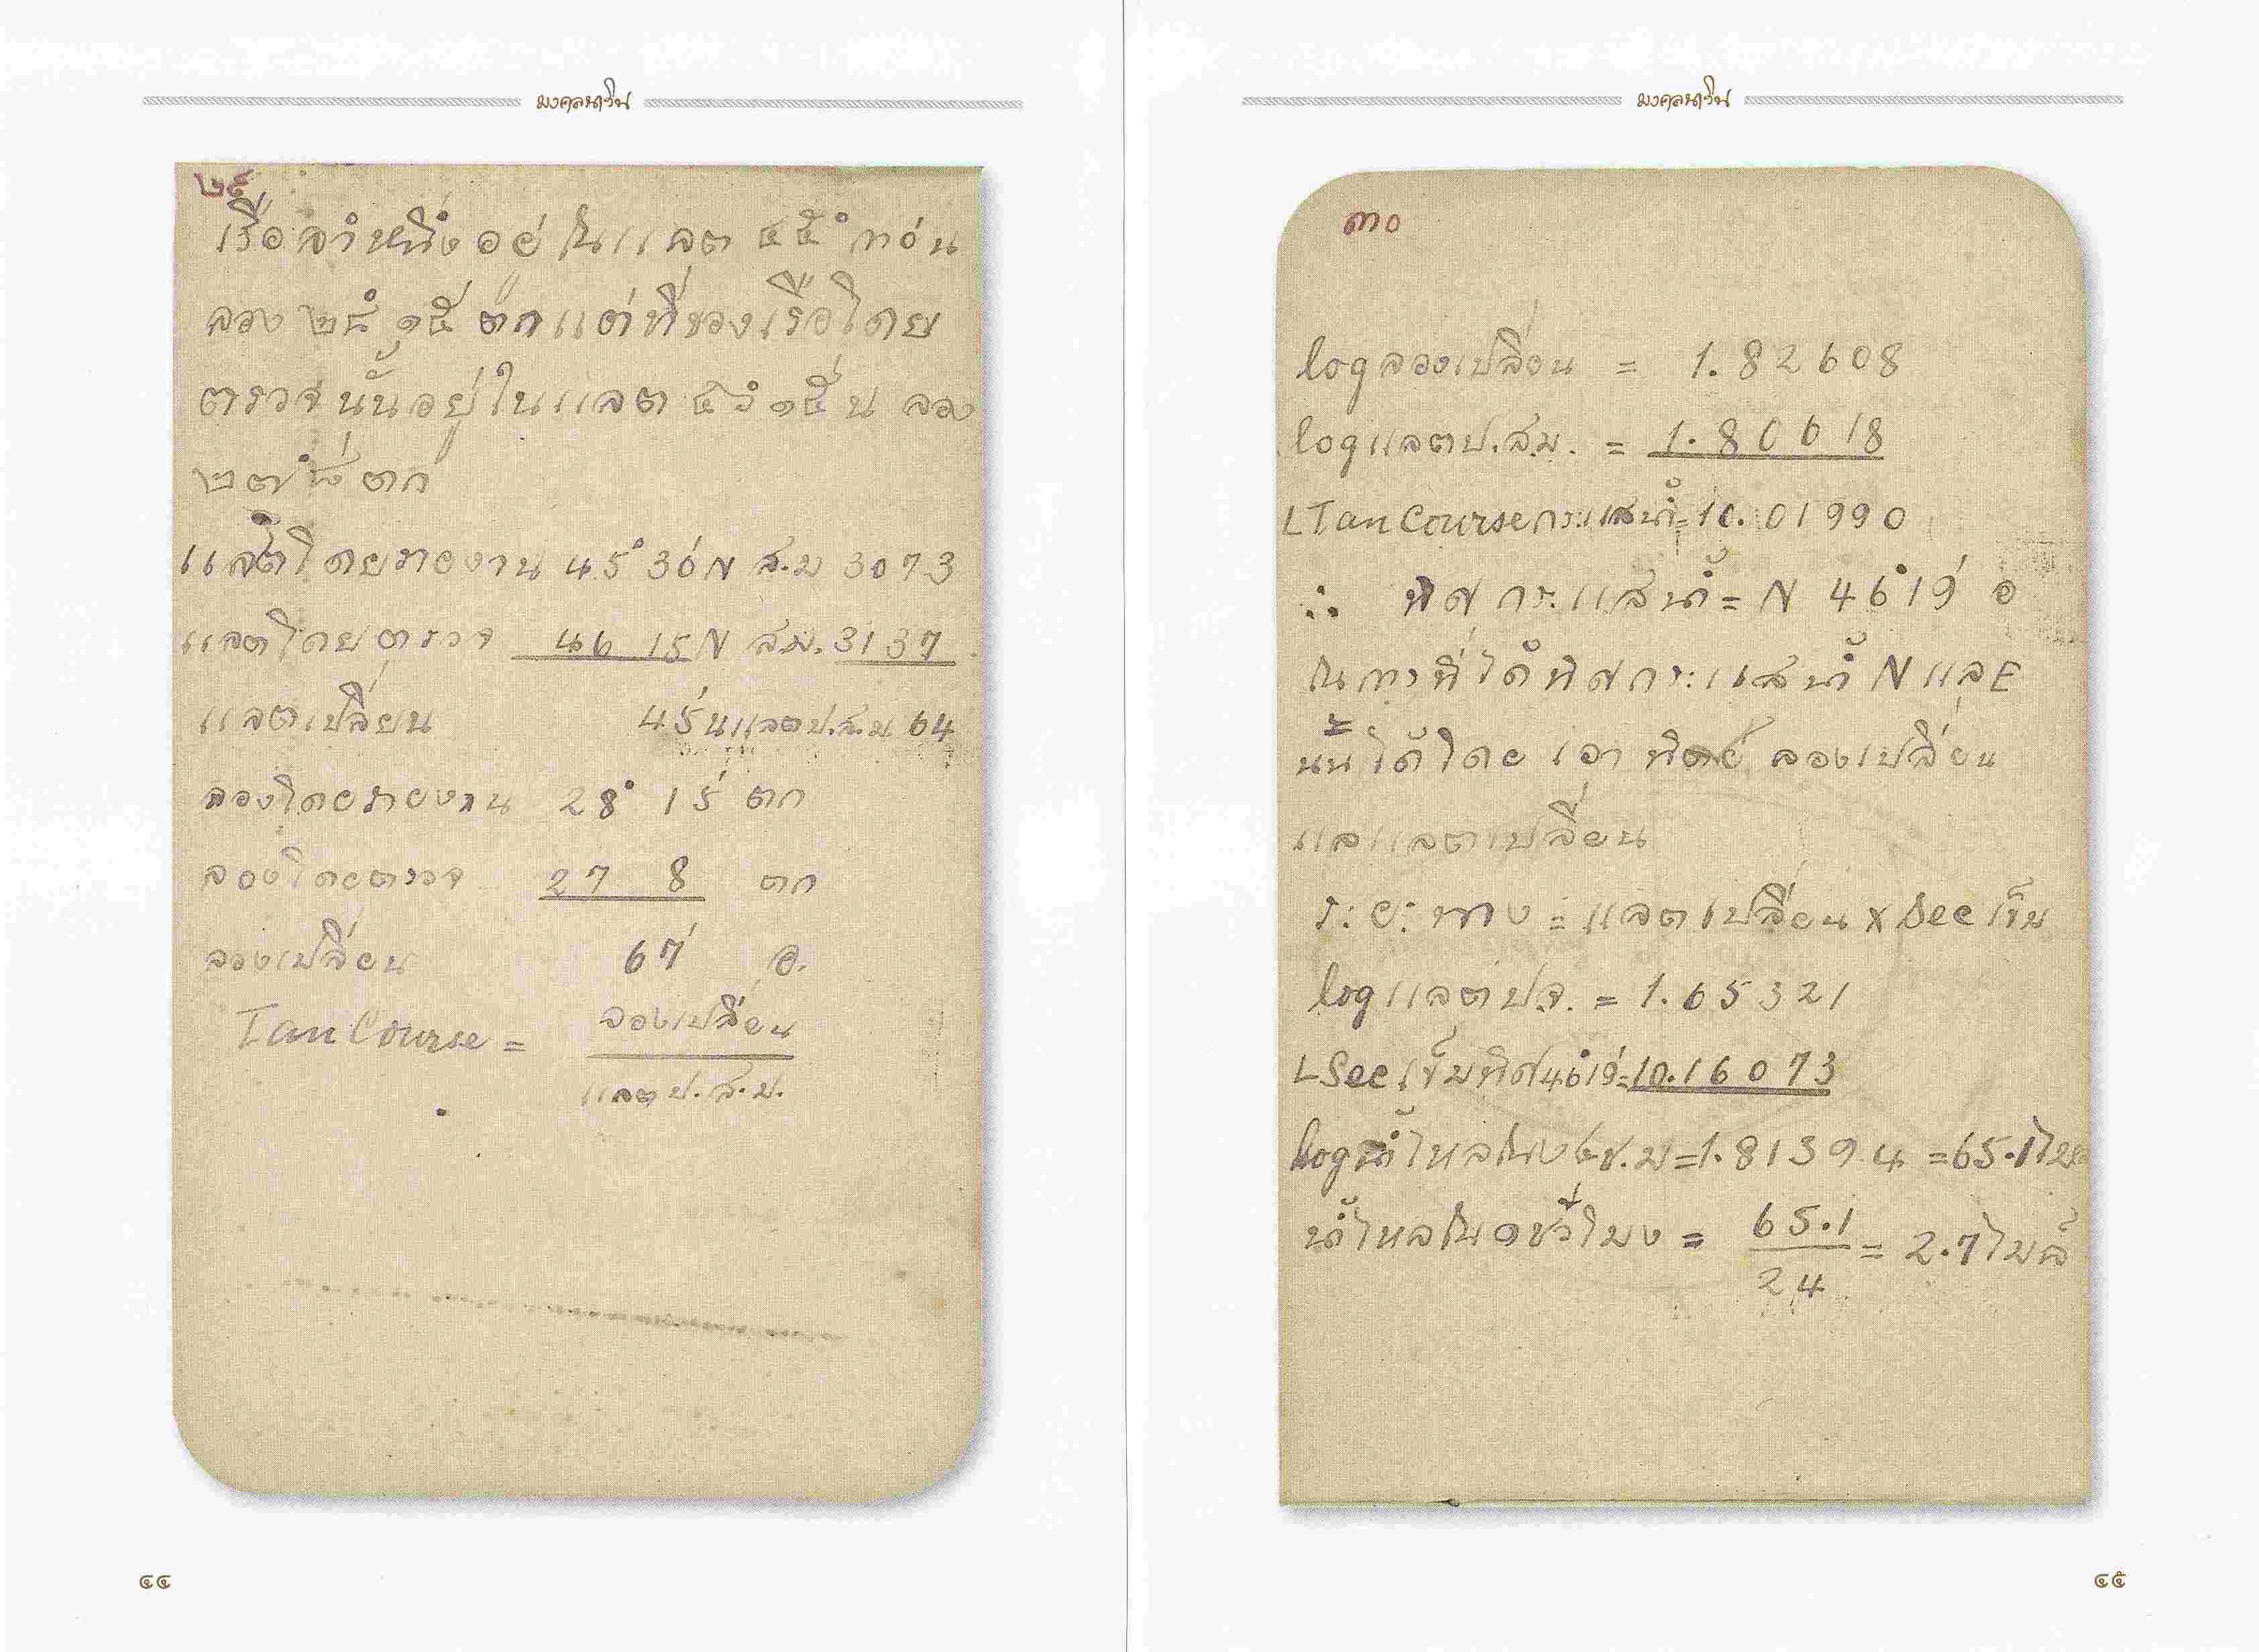 มงคลนาวิน
๒๙
เรือลำหนึ่งอยู่ในแลต ๔๕° ๓๐' น
ลอง ๒๘° ๑๕' ตก แต่ที่ของเรือโดย
ตรวจนั้นอยู่ในแลต ๔๖° ๑๕' น ลอง
๒๗° ๘' ตก
แลตโดยรายงาน 45° 30' N ส.ม 3073
แลตโดยตรวจ 46 15 N ส.ม. 3137
แลตเปลี่ยน 45' น แลตป.ส.ม 64
ลองโดยรายงาน 28° 15' ตก
ลองโดยตรวจ 27 8 ตก
ลองเปลี่ยน 67' อ.
Tan Course = ลองเปลี่ยน
แลตป.ส.ม.
๔๔
มงคลนาวิน
๓๐
log ลองเปลี่ยน = 1.82608
log แลตป.ส.ม. = 1.80618
L Tan Course กระแสน้ำ = 10.01990
∴ ทิศกระแสน้ำ = N 46° 19' อ
ในการที่ได้ทิศกระแสน้ำ N แล E
นั้นได้โดยเอา ลองเปลี่ยน
แลแลตเปลี่ยน
ระยะทาง = แลตเปลี่ยน x Sec เข็ม
log แลตป.จ. = 1.65321
L Sec เข็มทิศ 46° 19' = 10.16073
log น้ำไหลใน ๒๔ ช.ม = 1.81394 = 65.1 ไมล์
น้ำไหลใน ๑ ชั่วโมง = 65.1 = 2.7 ไมล์
24
๔๕